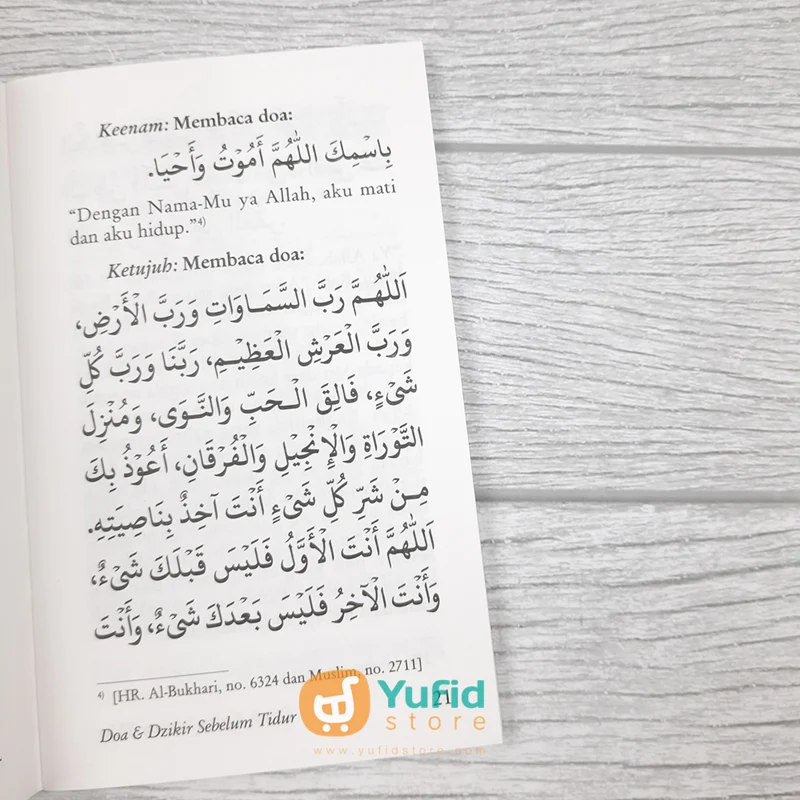 Keenam: Membaca doa:
بِاسْمِكَ اللّٰهُمَّ أَمُوْتُ وَأَحْيَا.
“Dengan Nama-Mu ya Allah, aku mati
dan aku hidup.”⁴⁾
Ketujuh: Membaca doa:
اَللّٰهُمَّ رَبَّ السَّمَاوَاتِ وَرَبَّ الْأَرْضِ،
وَرَبَّ الْعَرْشِ الْعَظِيْمِ، رَبَّنَا وَرَبَّ كُلِّ
شَيْءٍ، فَالِقَ الْحَبِّ وَالنَّوَى، وَمُنْزِلَ
التَّوْرَاةِ وَالْإِنْجِيْلِ وَالْفُرْقَانِ، أَعُوْذُ بِكَ
مِنْ شَرِّ كُلِّ شَيْءٍ أَنْتَ آخِذٌ بِنَاصِيَتِهِ.
اَللّٰهُمَّ أَنْتَ الْأَوَّلُ فَلَيْسَ قَبْلَكَ شَيْءٌ،
وَأَنْتَ الْآخِرُ فَلَيْسَ بَعْدَكَ شَيْءٌ، وَأَنْتَ
⁴⁾ [HR. Al-Bukhari, no. 6324 dan Muslim, no. 2711]
Doa & Dzikir Sebelum Tidur 21
Yufid
store
www.yufidstore.com